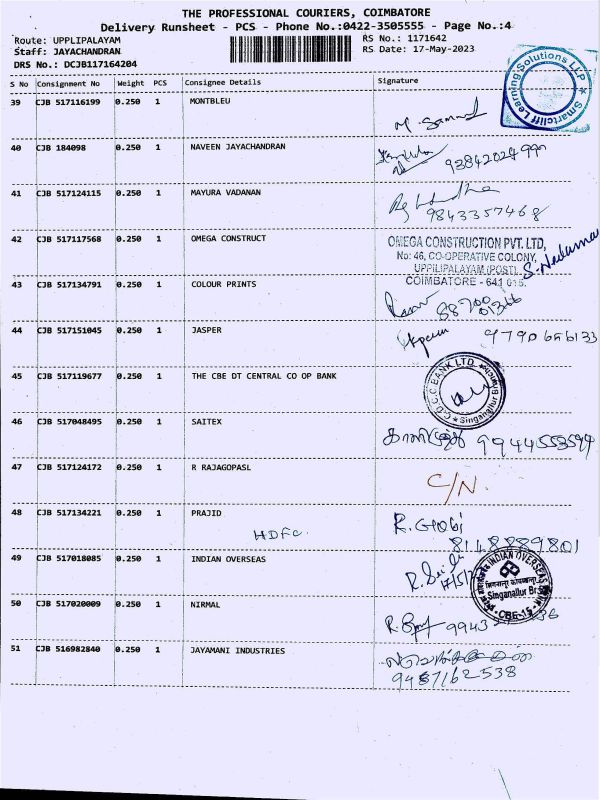 THE PROFESSIONAL COURIERS, COIMBATORE
Delivery Runsheet - PCS - Phone No.:0422-3505555 - Page No.:4
Route: UPPLIPALAYAM RS No.: 1171642
Staff: JAYACHANDRAN RS Date: 17-May-2023
DRS No.: DCJB117164204
Smartcliff Learning Solutions LLP
S No Consignment No Weight PCS Consignee Details Signature
39 CJB 517116199 0.250 1 MONTBLEU
40 CJB 184098 0.250 1 NAVEEN JAYACHANDRAN
41 CJB 517124115 0.250 1 MAYURA VADANAN
9843357468
42 CJB 517117568 0.250 1 OMEGA CONSTRUCT OMEGA CONSTRUCTION PVT. LTD,
No: 46, CO-OPERATIVE COLONY,
UPPILIPALAYAM (POST),
COIMBATORE - 641 015.
43 CJB 517134791 0.250 1 COLOUR PRINTS
44 CJB 517151045 0.250 1 JASPER 9790656133
45 CJB 517119677 0.250 1 THE CBE DT CENTRAL CO OP BANK
C.D.C.C. BANK LTD. Singanallur Br
46 CJB 517048495 0.250 1 SAITEX
9944553594
47 CJB 517124172 0.250 1 R RAJAGOPASL C/N.
48 CJB 517134221 0.250 1 PRAJID R. Gobi
HDFC 8148889801
49 CJB 517018085 0.250 1 INDIAN OVERSEAS
INDIAN OVERSEAS Singanallur Br. CBE-15
50 CJB 517020009 0.250 1 NIRMAL
51 CJB 516982840 0.250 1 JAYAMANI INDUSTRIES
9487162538